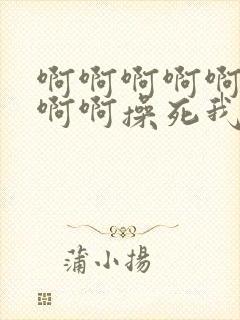 啊啊啊啊啊
啊啊操死我
蒲小揚